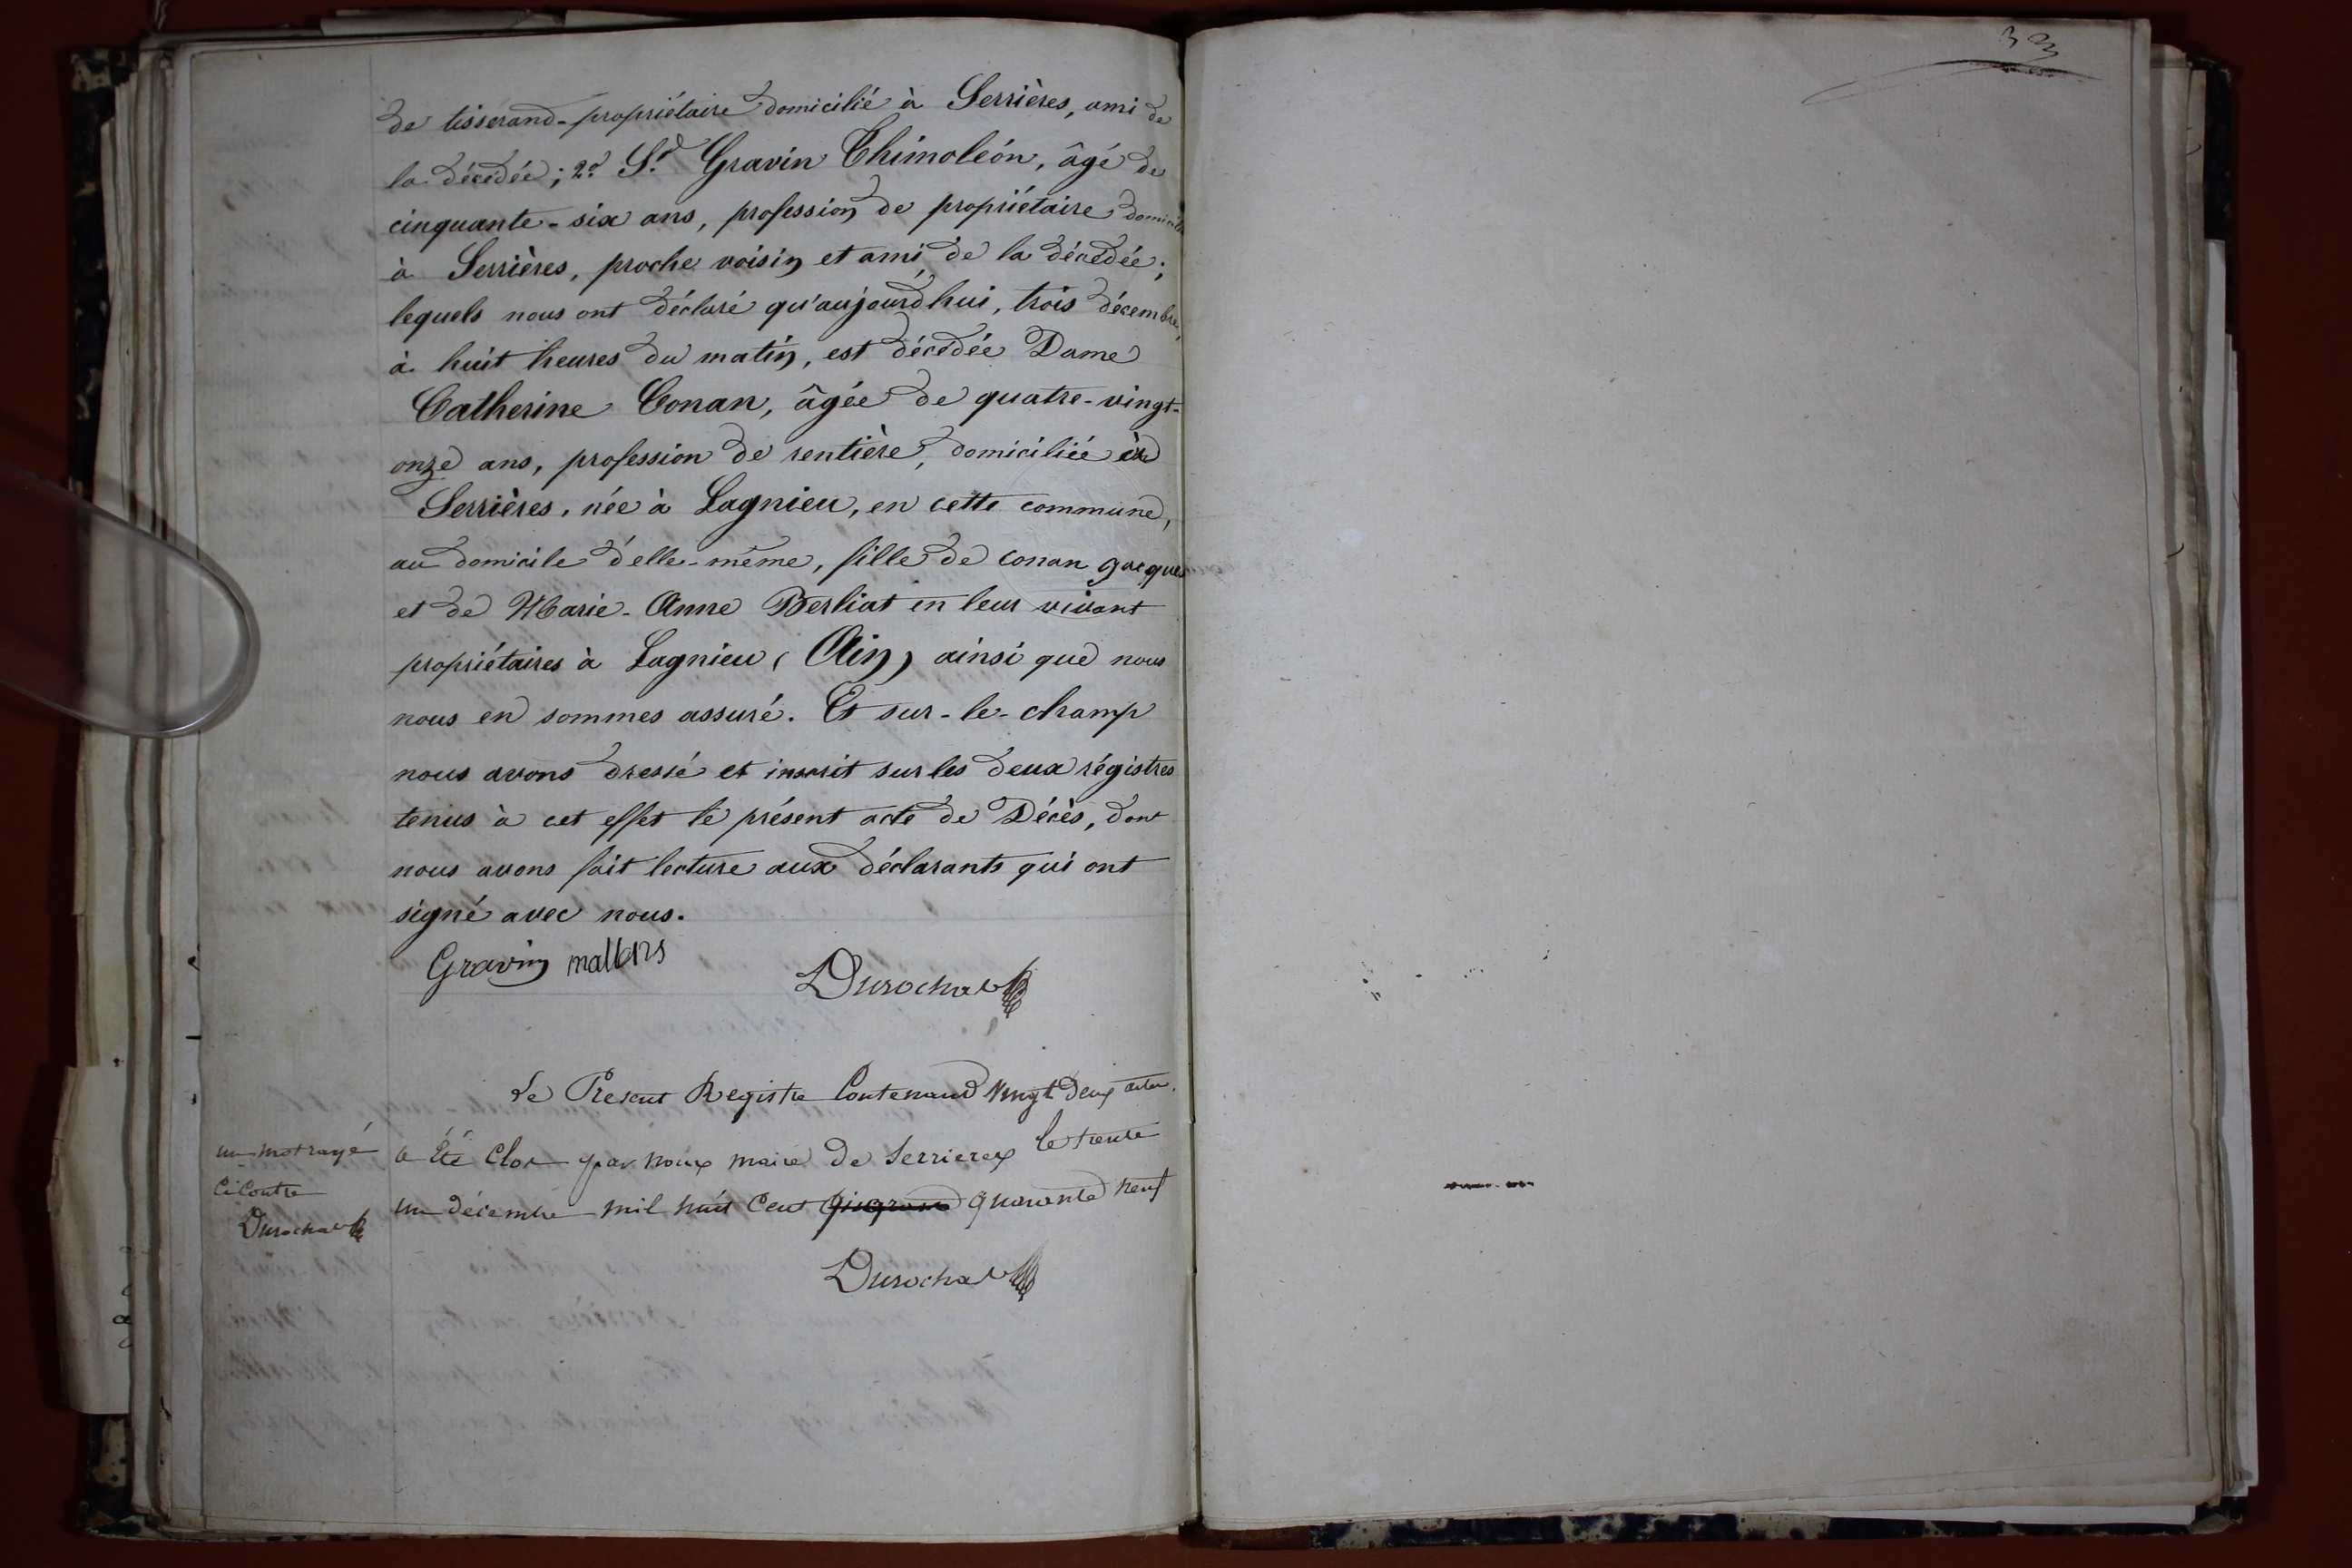 de tisserand-propriétaire domicilié à Serrières, ami de
la décédée ; 2.° S.r Gravin Thimoléon, âgé de
cinquante-six ans, profession de propriétaire domicilié
à Serrières, proche voisin et ami de la décédée ;
lequels nous ont déclaré qu'aujourd'hui, trois décembre,
à huit heures du matin, est décédée Dame
Catherine Conan, âgée de quatre-vingt-
onze ans, profession de rentière, domiciliée à
Serrières, née à Lagnieu, en cette commune,
au domicile d'elle-même, fille de Conan Jacques
et de Marie-Anne Berliat en leur vivant
propriétaires à Lagnieu (Ain) ainsi que nous
nous en sommes assuré. Et sur-le-champ
nous avons dressé et inscrit sur les deux régistres
tenus à cet effet le présent acte de Décès, dont
nous avons fait lecture aux déclarants qui ont
signé avec nous.
Gravin
Durochat
Le Present Registre Contenand Vingt deux actes
a Eté Clos par nous maire de Serrieres le trente
un décembre mil huit Cent quarante neuf
un mot rayé
Ci Contre
Durochat
Durochat
33